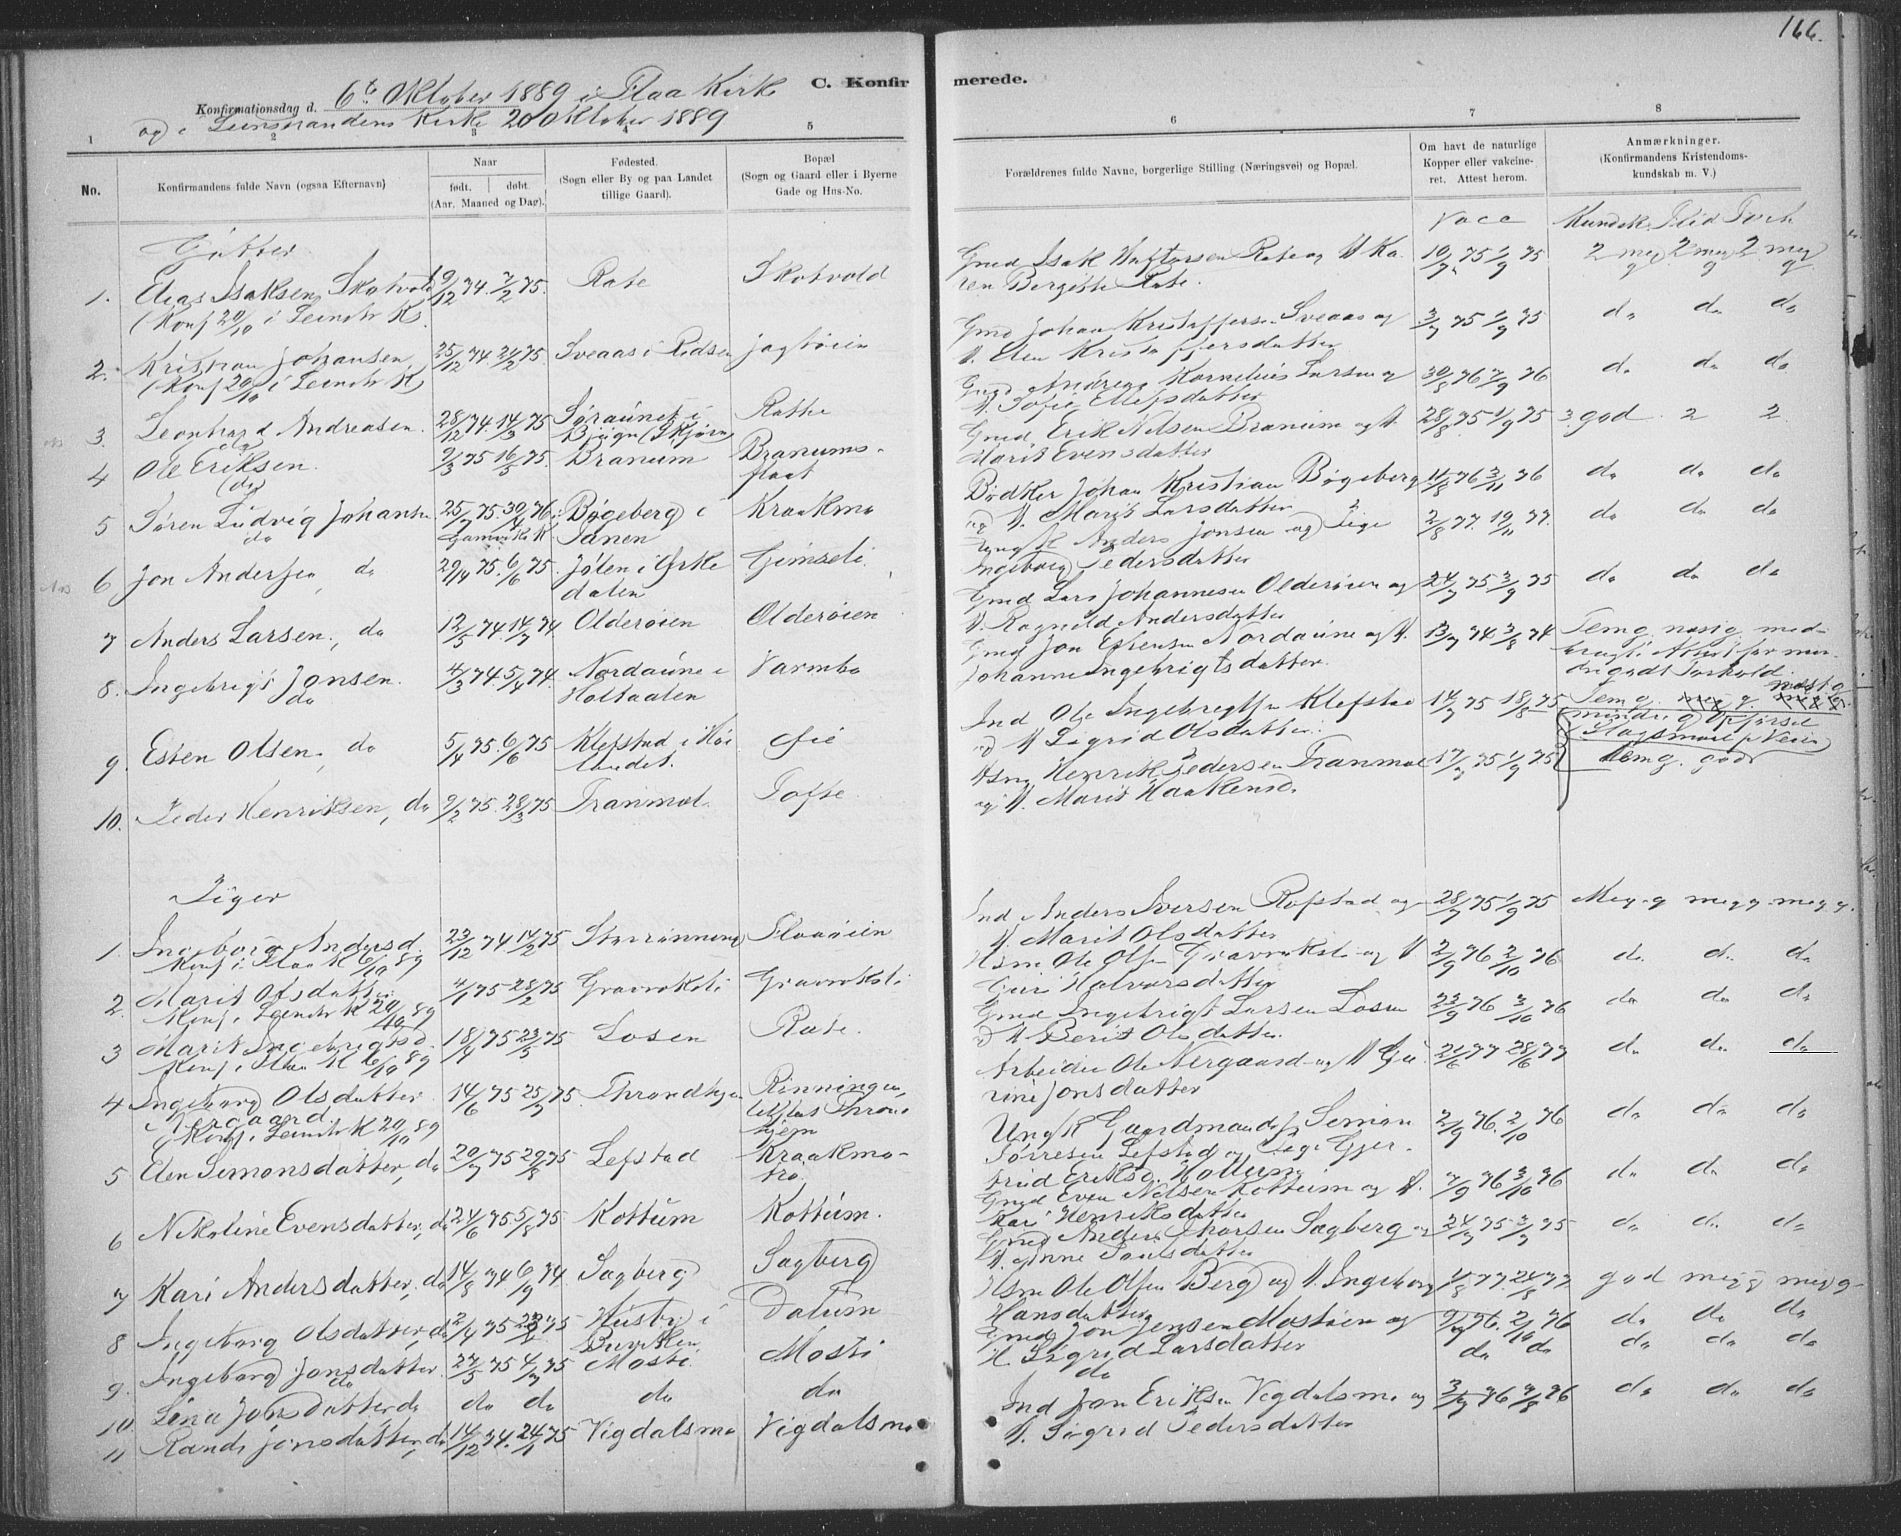 166.
C. Konfirmerede.
Konfirmationsdag d. 6te Oktober 1889 i Flaa Kirke
og i Leinstrandens Kirke 20 Oktober 1889
1 2 3 4 5 6 7 8
No.
Konfirmandens fulde Navn (ogsaa Efternavn)
Naar
født. døbt.
(Aar. Maaned og Dag).
Fødested.
(Sogn eller By og paa Landet
tillige Gaard).
Bopæl
(Sogn og Gaard eller i Byerne
Gade og Hus-No.
Forældrenes fulde Navne, borgerlige Stilling (Næringsvei) og Bopæl.
Om havt de naturlige
Kopper eller vakcine-
ret. Attest herom.
Anmærkninger.
(Konfirmandens Kristendoms-
kundskab m. V.)
Vacc Kundsk Flid Forh
Gutter.
1. Elias Isaksen Skotvold 19/12 74. 7/2 75. Rate Skotvold
(Konf 20/10 i Leinstr K.
Gmd Isak Rate og H Ka-
ren Bergitte Rate. 10/7 75 1/9 75 2 meg g 2 meg g 2 meg g
2. Kristian Johansen 25/12 74 21/2 75 Sveaas i Jagtøien
(Konf 20/10 i Leinstr K)
Gmd Johan Kristoffersen Sveaas og
H. Elen Kristoffersdatter 3/7 75 1/9 75 do do do
3. Leonhard Andreasen. 28/12 74. 14/3 75 Søraunet i Rathe
do Bjugn (Skjørn)
Gmd Andreas Kornelius Larsen og
H. Sofie Ellefsdatter 30/8 76 7/9 76 do do do
4 Ole Eriksen. 9/3 75 16/5 75. Branum Branums-
(do flaat
Gmd. Erik Nilsen Branum og H.
Marit Evensdatter 28/8 75 1/9 75 3. god. 2 2
5 Søren Ludvig Johansen 25/7 75. 30/4 76 i Bøgeberg i Kraakmo
do Gamvik K Tanen
Bødker Johan Kristian Bøgeberg
og H. Marit Larsdatter 11/8 76 3/11 76 do do do
6 Jon Andersen do 29/4 75. 6/6 75. Jølen i Ørke Gimseli
dalen
Ung K Anders Jonsen og Pige
Ingeborg Pedersdatter 2/8 77. 19/11 77. do do do
7 Anders Larsen., do 12/5 74 14/7 74 Olderøien Olderøien
Gmd Lars Johannesen Olderøien og
H. Ragnild Andersdatter 24/7 75 3/9 75 do do do
8. Ingebrigt Jonsen. 4/3 74 5/4 74. Nordaune i Varmbo
do Holtaalen
Gmd Jon Estensen Nordaune og H.
Johanne Ingebrigtsdatter. 13/7 74 3/8 74 Temg. med-
bragt Attest for min-
dre godt Forhold.
9 Esten Olsen., do 5/4 75. 6/6 75 Klefstad i Høi Øie
landet.
Ind Ole Ingebrigtsen Klefstad
og H Sigrid Olsdatter. 14/7 75 18/8 75 Temg. meg g.
mindre g Opførsel
Slagsmaal p Veien
10. Peder Henriksen, do 9/2 75. 28/3 75 Tranmæl. Tofte.
Hsm Henrik Pedersen Tranmæl
og H. Marit Haakensd. 17/7 75 1/9 75 temg. godt
Piger
1. Ingeborg Andersd. 23/12 74 14/2 75 Størrønning Flaaøien
Konf i Flaa K 6/10 89
Ind Anders Iversen Rofstad og
H. Marit Olsdatter 28/7 75 1/9 75 Meg g meg g meg g.
2. Marit Olsdatter 4/1 75 28/2 75 Gravrokst i Gravrokst i
Konf i Leinstr K 20/10 89
Hsm Ole Olsen Gravrokst i og H
Guri Halvorsdatter 2/9 76 2/10 76 do do do
3 Marit Ingebrigtsd. 18/4 75 23/5 75 Losen Rate.
Konf i Flaa K 6/10 89
Gmd Ingebrigt Larsen Losen
og H Berit Olsdatter. 23/9 76 3/10 76 do do do
4 Ingeborg Olsdatter 14/6 75 25/7 75. Throndhjem Rinningen,
Nergaard
(Konf i Leinstr K 20/10 89
Arbeider Ole Nergaard og H Gu-
rine Jonsdatter 21/6 77 28/6 77 do do do
5 Elen Simonsdatter, do 20/7 75 29/8 75 Lefstad Kraakmo-
trø.
Ung K Gaardmands s Simon
Tørresen Lefstad og Pige Gjer-
trud Eriksd. Hollum 2/9 76. 2/10 76 do do do
6 Nikoline Evensdatter, do 24/6 75 5/8 75 Kottum Kottum.
Gmd Even Nilsen Kottum og H.
Kari Henriksdatter 7/9 76 3/10 76 do do do
7 Kari Andersdatter, do 14/8 74 6/9 74 Sagberg Sagberg
Gmd Anders Thorsen Sagberg og
H. Anne Paulsdatter 24/7 75 3/9 75 do do do
8 Ingeborg Olsdatter, do 2/4 75 Husby i Dalum
Buviken
Hsm Ole Olsen Berg og H. Ingeborg
Hansdatter 1/8 77. 24/8 77 god meg g meg g
9. Ingeborg Jonsdatter. 27/5 75 4/7 75 Mosti Mosti
do
Gmd Jon Jensen Mostøien og
H Sigrid Larsdatter 9/9 76. 2/10 76 do do do
10. Lina Jonsdatter do do do do do
do do do do do do
11 Randi Jonsdatter, do 14/12 74. 24/1 75 Vigdalsmo Vigdalsmo
Ind Jon Eriksen Vigdalsmo og
H. Sigrid Pedersdatter 3/7 76 9/8 76 do do do